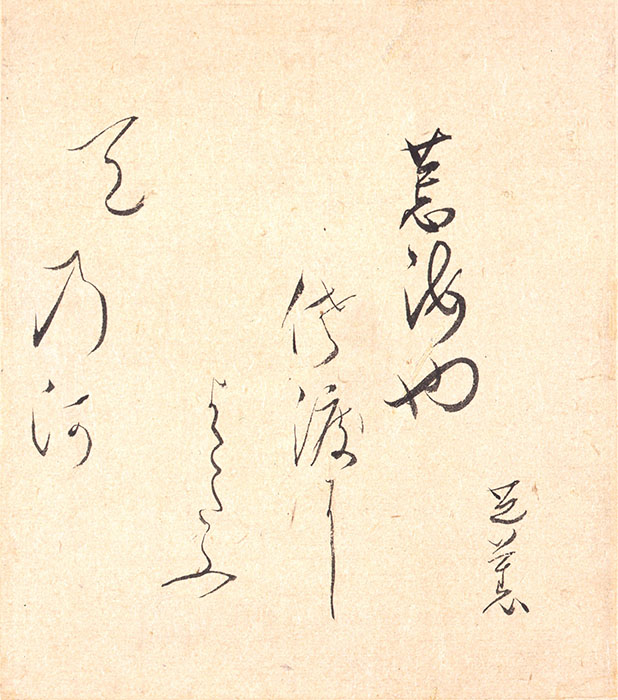 芭蕉
荒海や
佐渡に
よこたふ
天乃河